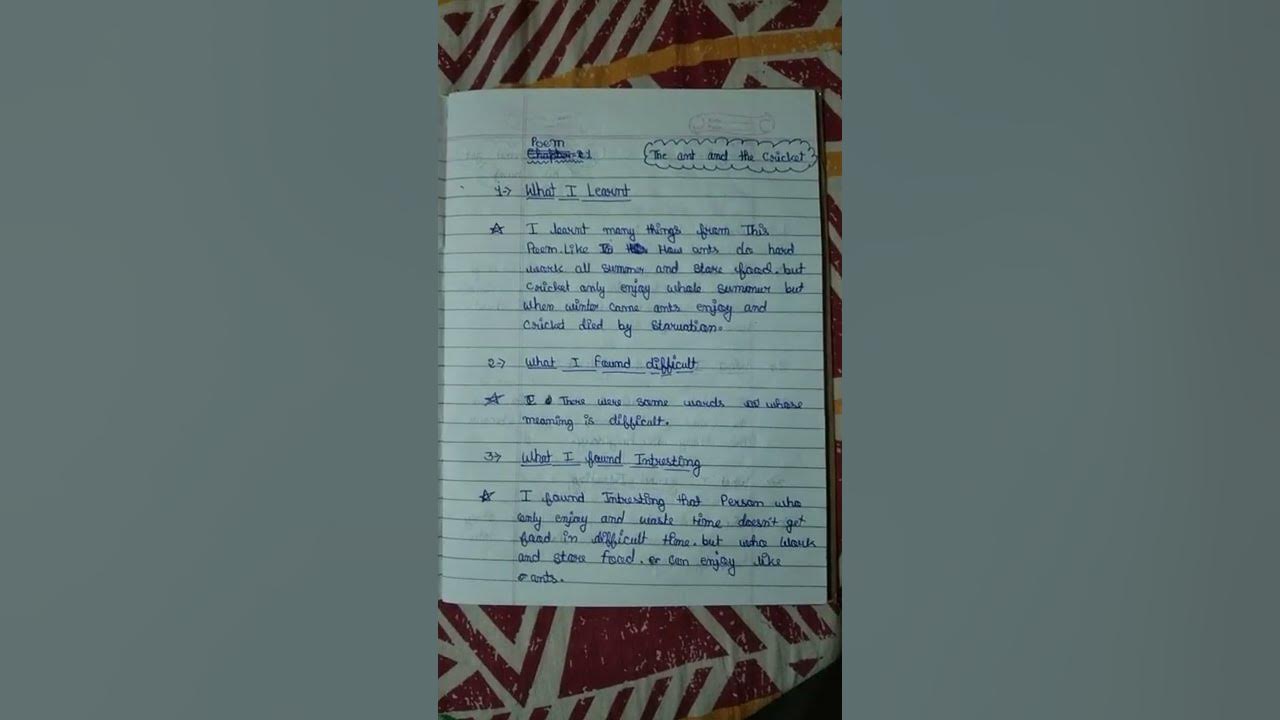 Poem
Chapter-1
The ant and the Cricket
1→ What I Learnt
☆ I learnt many things from This
Poem. Like How ants do hard
work all summer and store food. but
Cricket only enjoy whole summer but
when winter came ants enjoy and
Cricket died by starvation.
2→ What I found difficult
☆ There were some words whose
meaning is difficult.
3→ What I found Intresting
☆ I found Intresting that Person who
only enjoy and waste time doesn't get
food in difficult time. but who work
and store food. can enjoy like
ants.